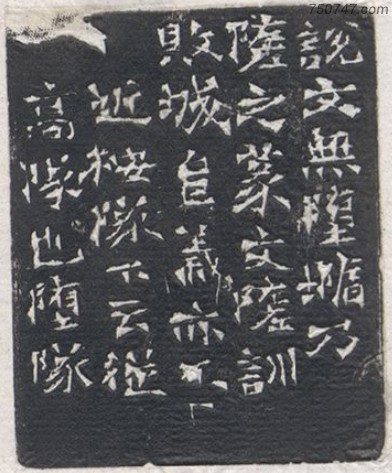 說文無墮乃
隓之篆文隓訓
敗城𨸏義亦不
近按隊下云從
高隊也墮隊
750747.com